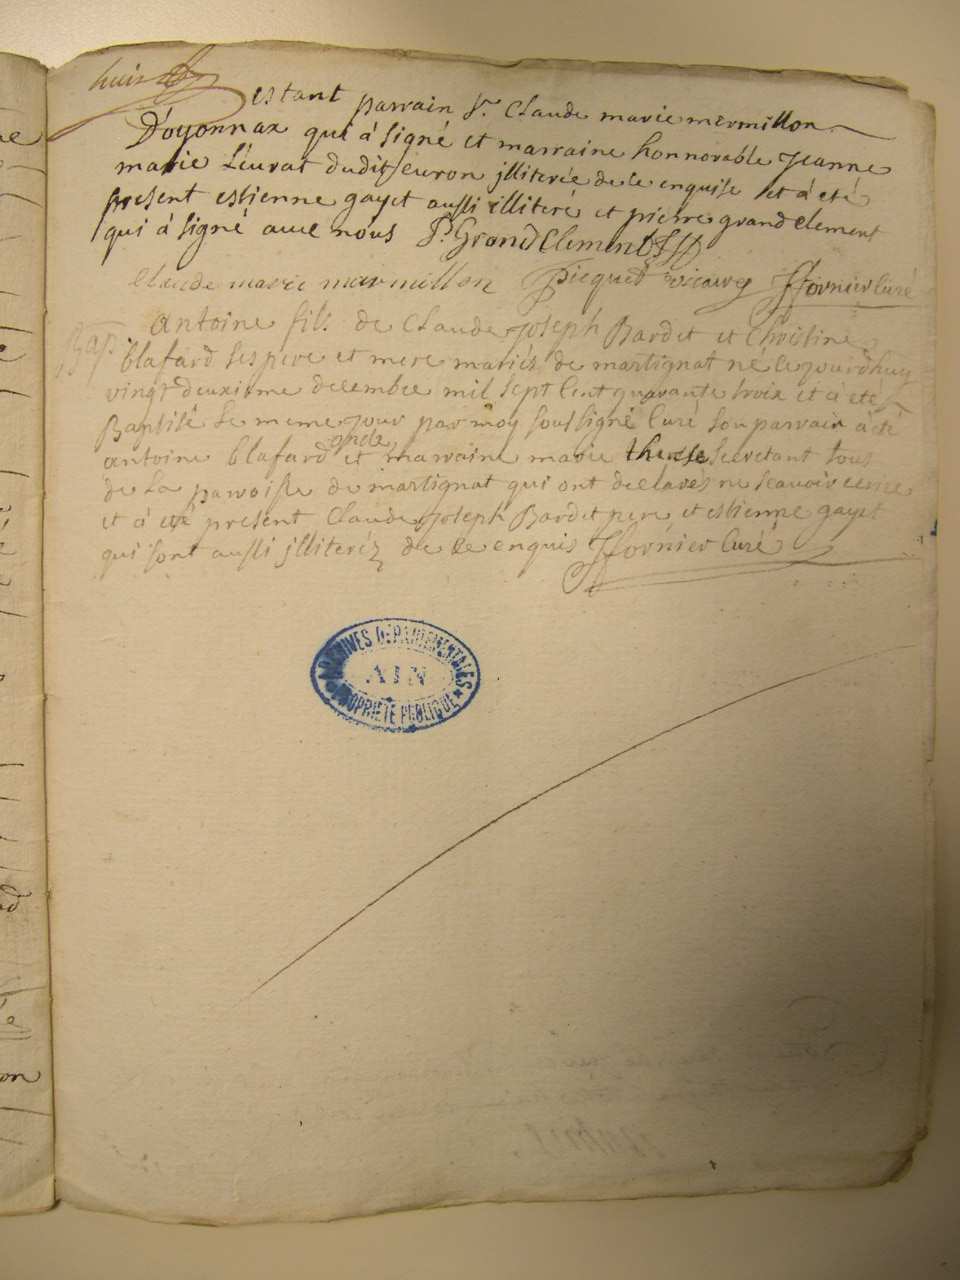 huit
estant parrain Sr Claude marie mermillon
D'oyonnax qui à signé et marraine honnorable Jeanne
marie Léurat dudit euron jlliterée de ce enquise et à eté
present estienne gayet aussi illitere et pierre grand clement
qui à signé avec nous P. Grand Clement
Claude marie marmillon Picquet vicaire ffornier Curé
Bap. Antoine fils de Claude Joseph Bardet et Christine
blafard ses pere et mere mariés de martignat né ce jourdhuy
vingt deuxieme decembre mil sept cent quarante trois et à eté
Baptisé le meme jour par moy soussigné Curé son parrain à eté
oncle
antoine blafard et marraine marie therese secretant tous
de la parroisse de martignat qui ont declarés ne scavoir ecrire
et à eté present Claude Joseph Bardet pere et estienne gayet
qui sont aussi jlliteréz de ce enquis ffornier Curé
ARCHIVES DÉPARTEMENTALES
AIN
PROPRIÉTÉ PUBLIQUE